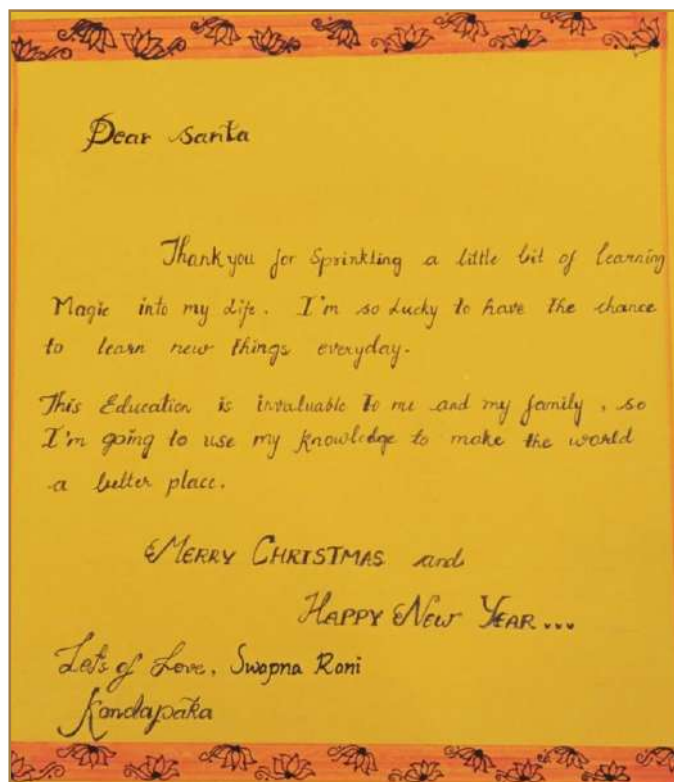 Dear Santa
Thank you for Sprinkling a little bit of learning
Magic into my Life. I'm so Lucky to have the chance
to learn new things everyday.
This Education is invaluable to me and my family, so
I'm going to use my knowledge to make the world
a better place.
MERRY CHRISTMAS and
HAPPY NEW YEAR...
Lots of Love, Swapna Roni
Kondapaka